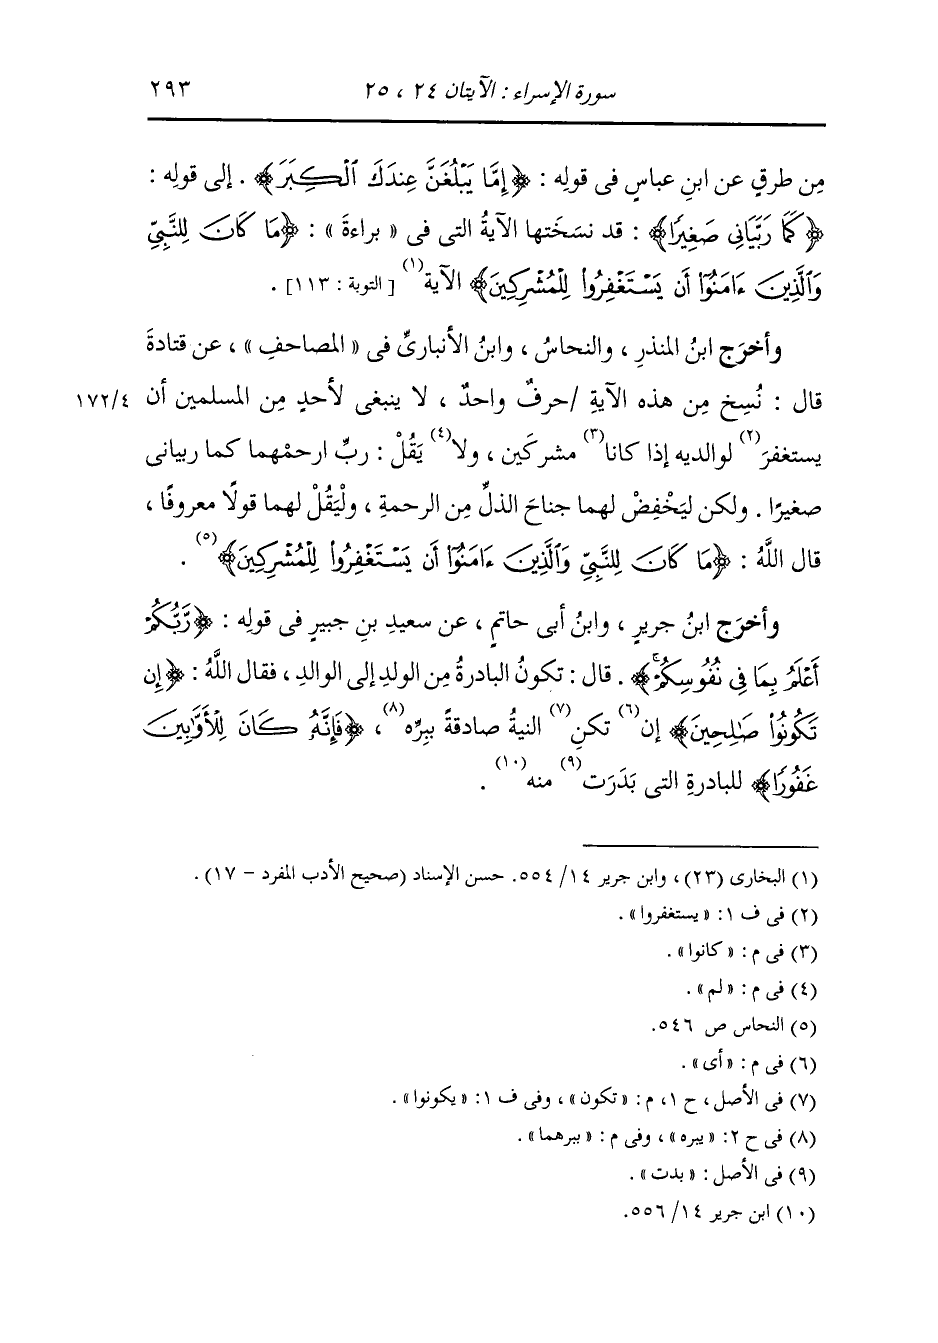 سورة الإسراء : الآيتان ٢٤ ، ٢٥ ٢٩٣
مِن طرقٍ عن ابنِ عباسٍ فى قولِه : ﴿إِمَّا يَبْلُغَنَّ عِندَكَ ٱلْكِبَرَ﴾ . إلى قولِه :
﴿كَمَا رَبَّيَانِى صَغِيرًا﴾ : قد نسَخَتها الآيةُ التى فى « براءةَ » : ﴿مَا كَانَ لِلنَّبِىِّ
وَٱلَّذِينَ ءَامَنُوٓا۟ أَن يَسْتَغْفِرُوا۟ لِلْمُشْرِكِينَ﴾ الآية(١) [ التوبة : ١١٣] .
وأخرَج ابنُ المنذرِ ، والنحاسُ ، وابنُ الأنبارىِّ فى « المصاحفِ » ، عن قتادةَ
قال : نُسِخ مِن هذه الآيةِ /حرفٌ واحدٌ ، لا ينبغى لأحدٍ مِن المسلمين أن ١٧٢/٤
يستغفرَ(٢) لوالديه إذا كانا(٣) مشركَين ، ولا(٤) يَقُلْ : ربِّ ارحمْهما كما ربيانى
صغيرًا . ولكن ليَخْفِضْ لهما جناحَ الذلِّ مِن الرحمةِ ، ولْيَقُلْ لهما قولًا معروفًا ،
قال اللَّهُ : ﴿مَا كَانَ لِلنَّبِىِّ وَٱلَّذِينَ ءَامَنُوٓا۟ أَن يَسْتَغْفِرُوا۟ لِلْمُشْرِكِينَ﴾(٥) .
وأخرَج ابنُ جريرٍ ، وابنُ أبى حاتمٍ ، عن سعيدِ بنِ جبيرٍ فى قولِه : ﴿رَّبُّكُمْ
أَعْلَمُ بِمَا فِى نُفُوسِكُمْ﴾ . قال : تكونُ البادرةُ مِن الولدِ إلى الوالدِ ، فقال اللَّهُ : ﴿إِن
تَكُونُوا۟ صَٰلِحِينَ﴾ إن(٦) تكنِ(٧) النيةُ صادقةً ببِرِّه(٨) ، ﴿فَإِنَّهُۥ كَانَ لِلْأَوَّٰبِينَ
غَفُورًا﴾ للبادرةِ التى بَدَرَت(٩) منه(١٠) .
(١) البخارى (٢٣) ، وابن جرير ١٤/ ٥٥٤. حسن الإسناد (صحيح الأدب المفرد - ١٧) .
(٢) فى ف ١: «يستغفروا» .
(٣) فى م : « كانوا» .
(٤) فى م : «لم» .
(٥) النحاس ص ٥٤٦.
(٦) فى م : «أى» .
(٧) فى الأصل ، ح ١، م : «تكون» ، وفى ف ١: «يكونوا» .
(٨) فى ح ٢: «يبره» ، وفى م : «ببرهما» .
(٩) فى الأصل : «بدت» .
(١٠) ابن جرير ١٤/ ٥٥٦.